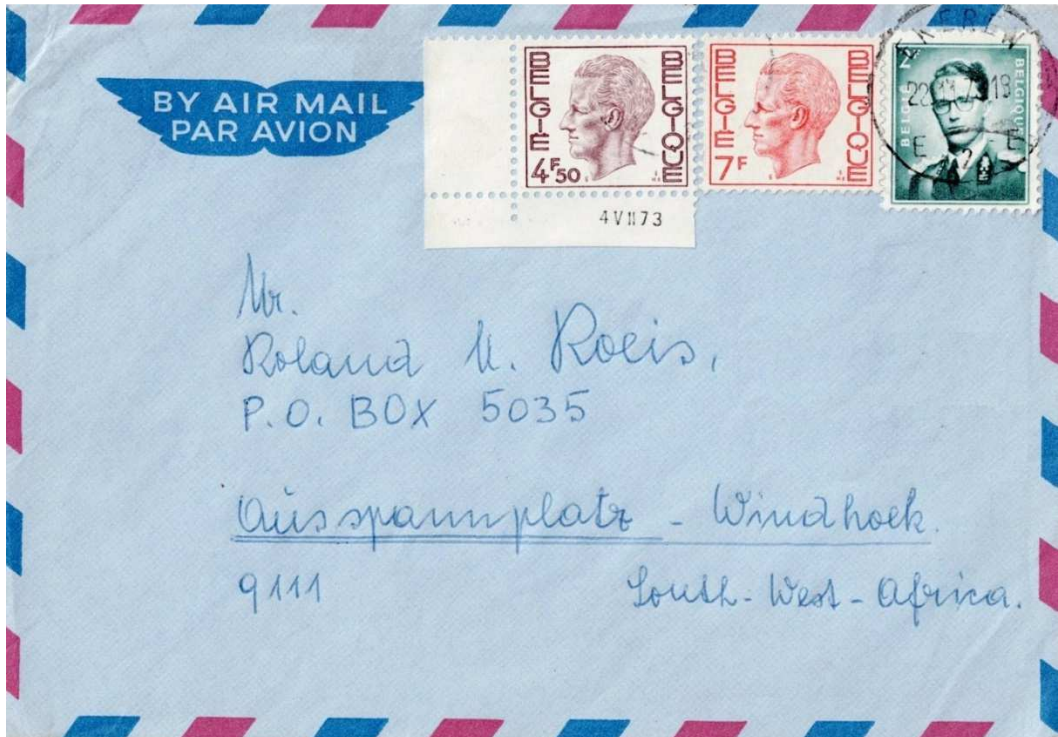 BY AIR MAIL
PAR AVION
BELGIE BELGIQUE
4F50
4 VII 73
BELGIE BELGIQUE
7F
BELGIË BELGIQUE
Mr.
Roland M. Roeis,
P.O. BOX 5035
Ausspannplatz - Windhoek.
9111
South-West-Africa.